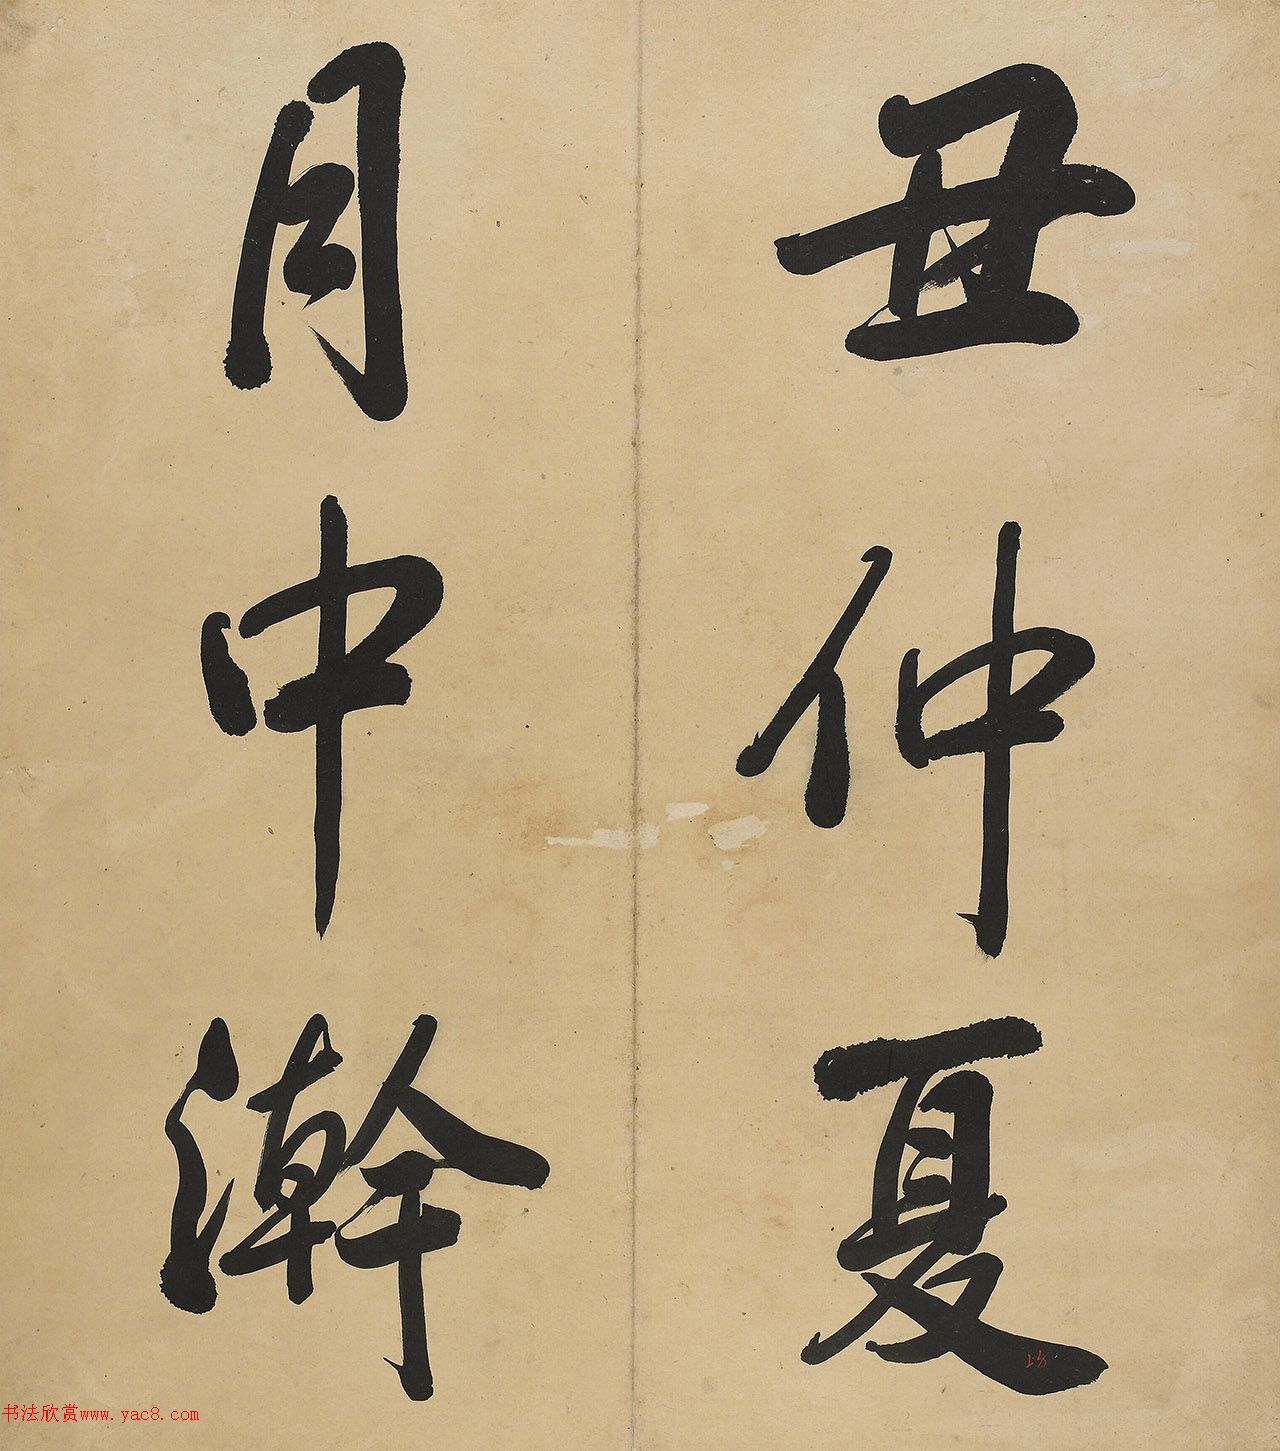 丑仲夏
月中澣
书法欣赏www.yac8.com